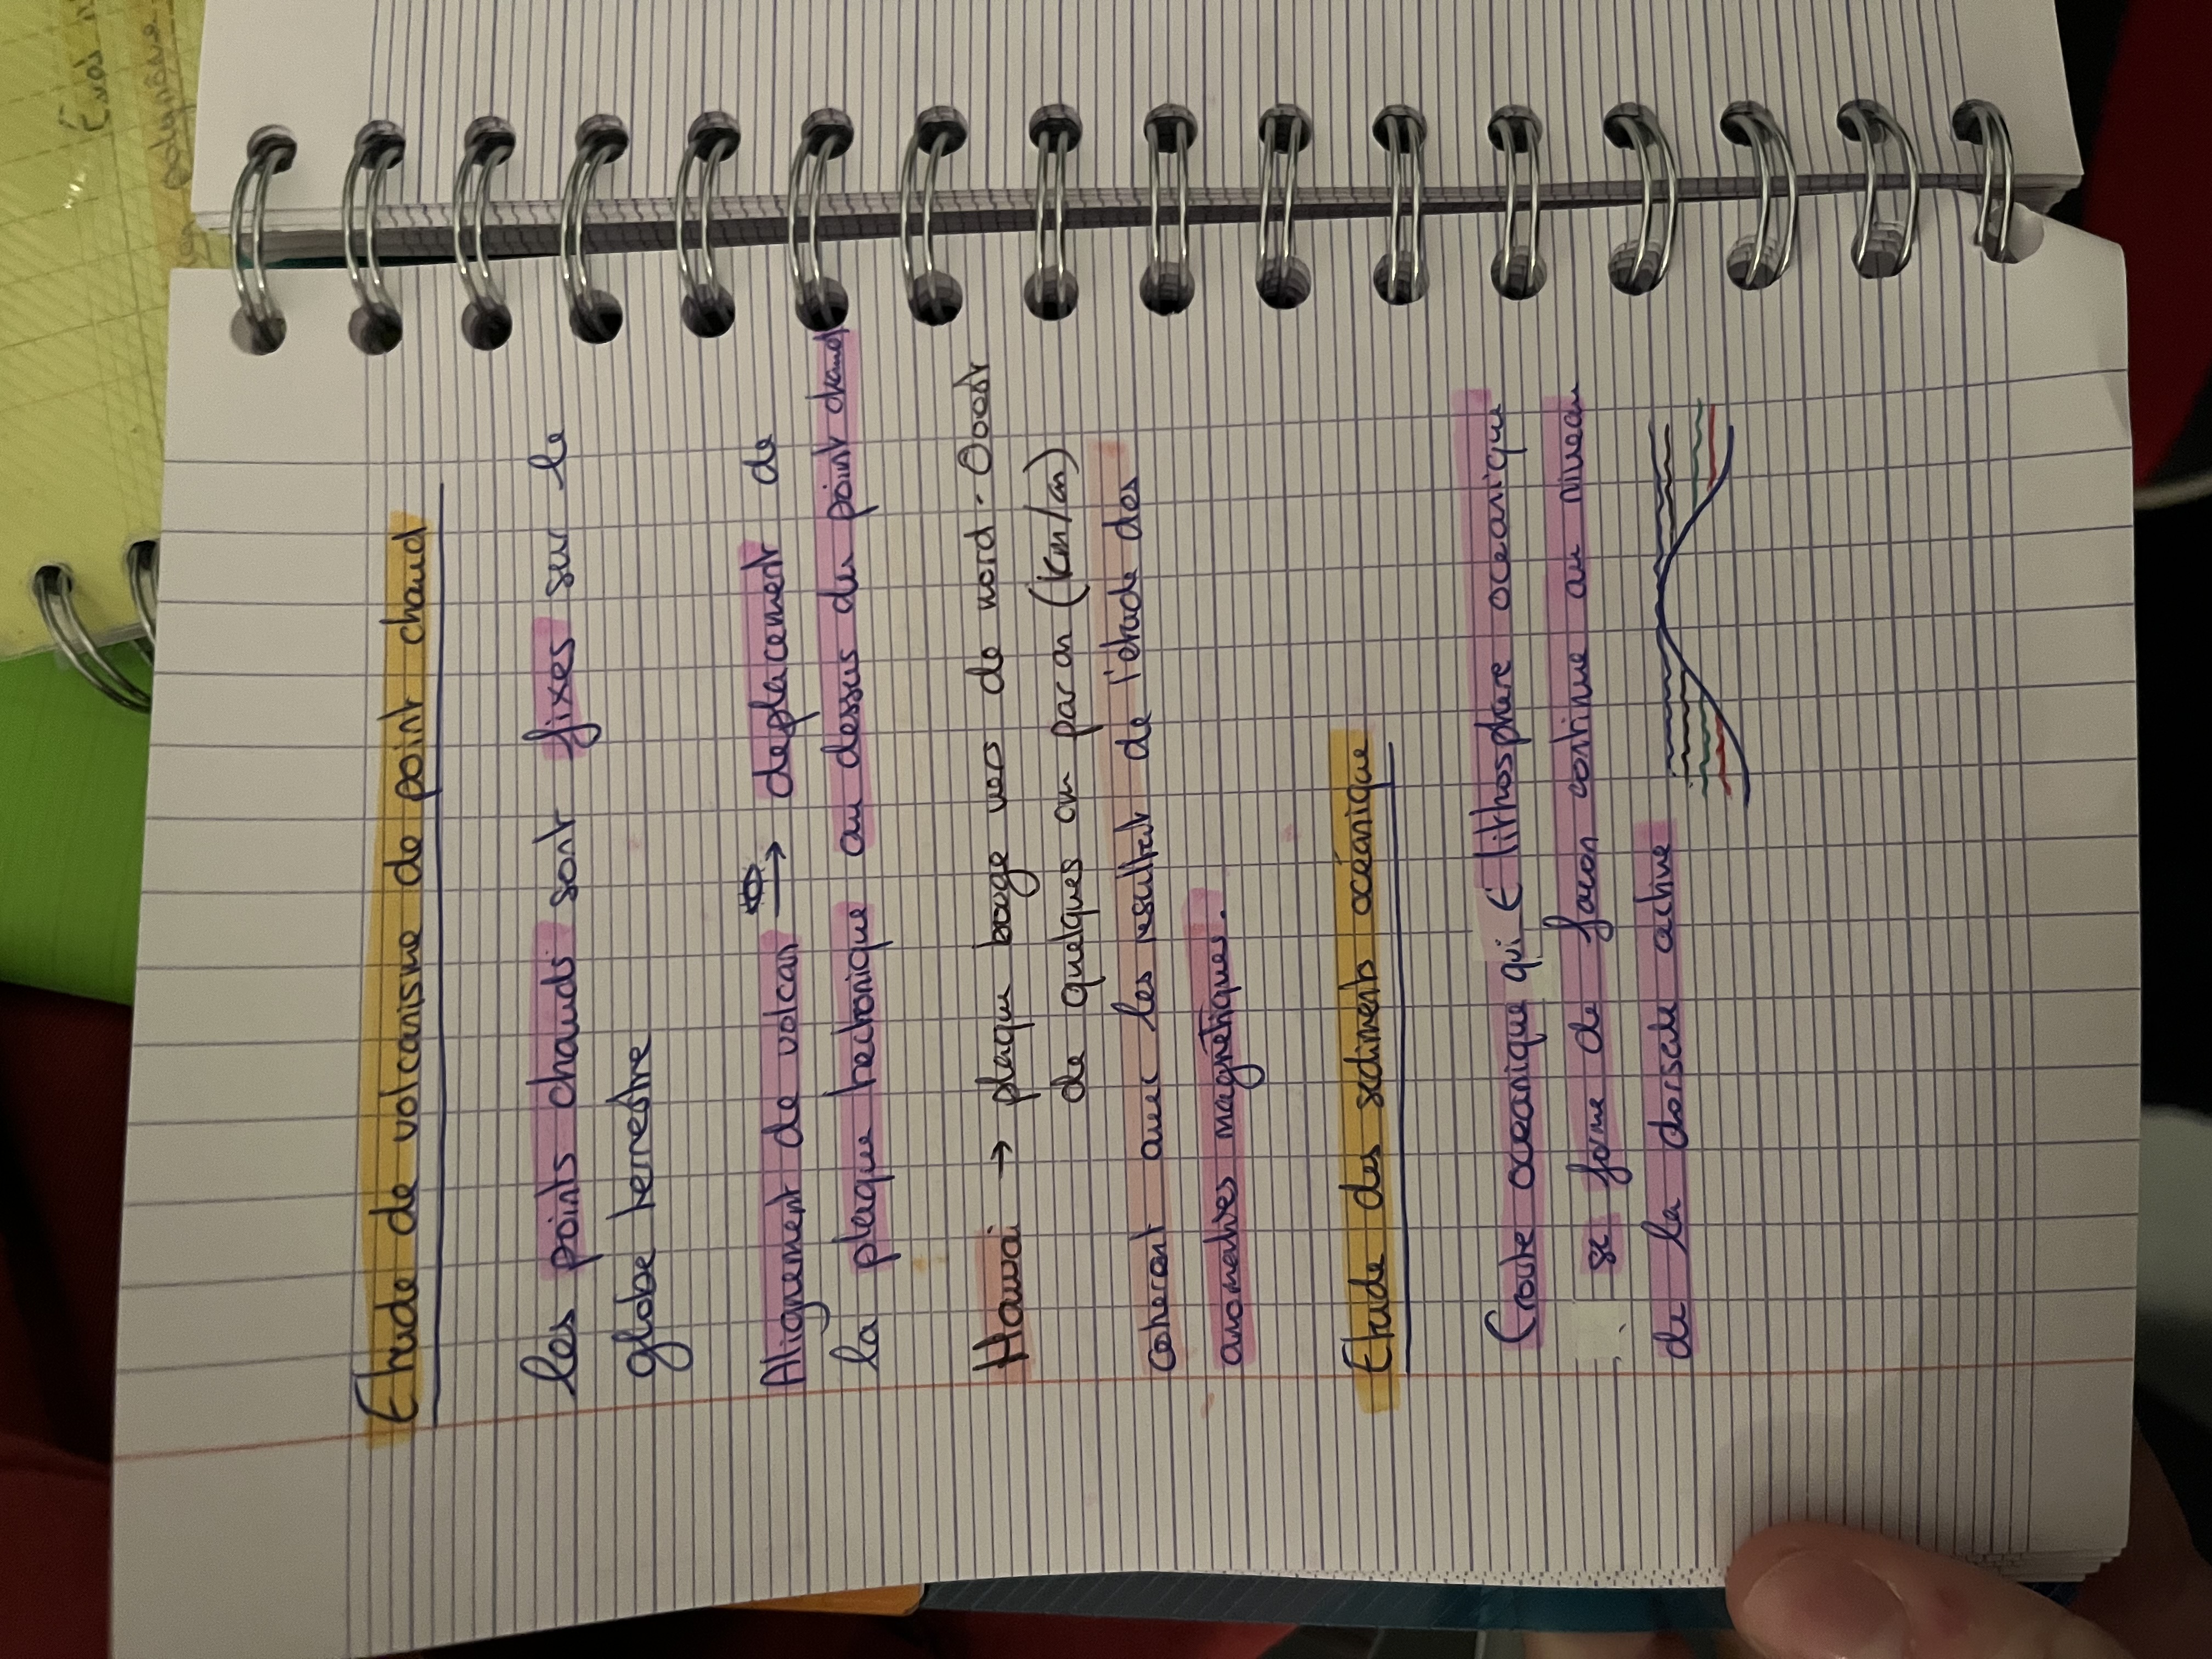 Etude de volcanisme de point chaud
les points chauds sont fixes sur le
globe terrestre
Alignement de volcan → deplacement de
la plaque tectonique au dessus du point chaud
Hawai → plaque bouge vers de nord-Ouest
de quelques cm par an (km/an)
Coherent avec les resultat de l'etude des
anomalies magnétiques.
Etude des sediments océanique
Croute oceanique qui E lithosphere oceanique
se forme de facon continue au niveau
de la dorsale active